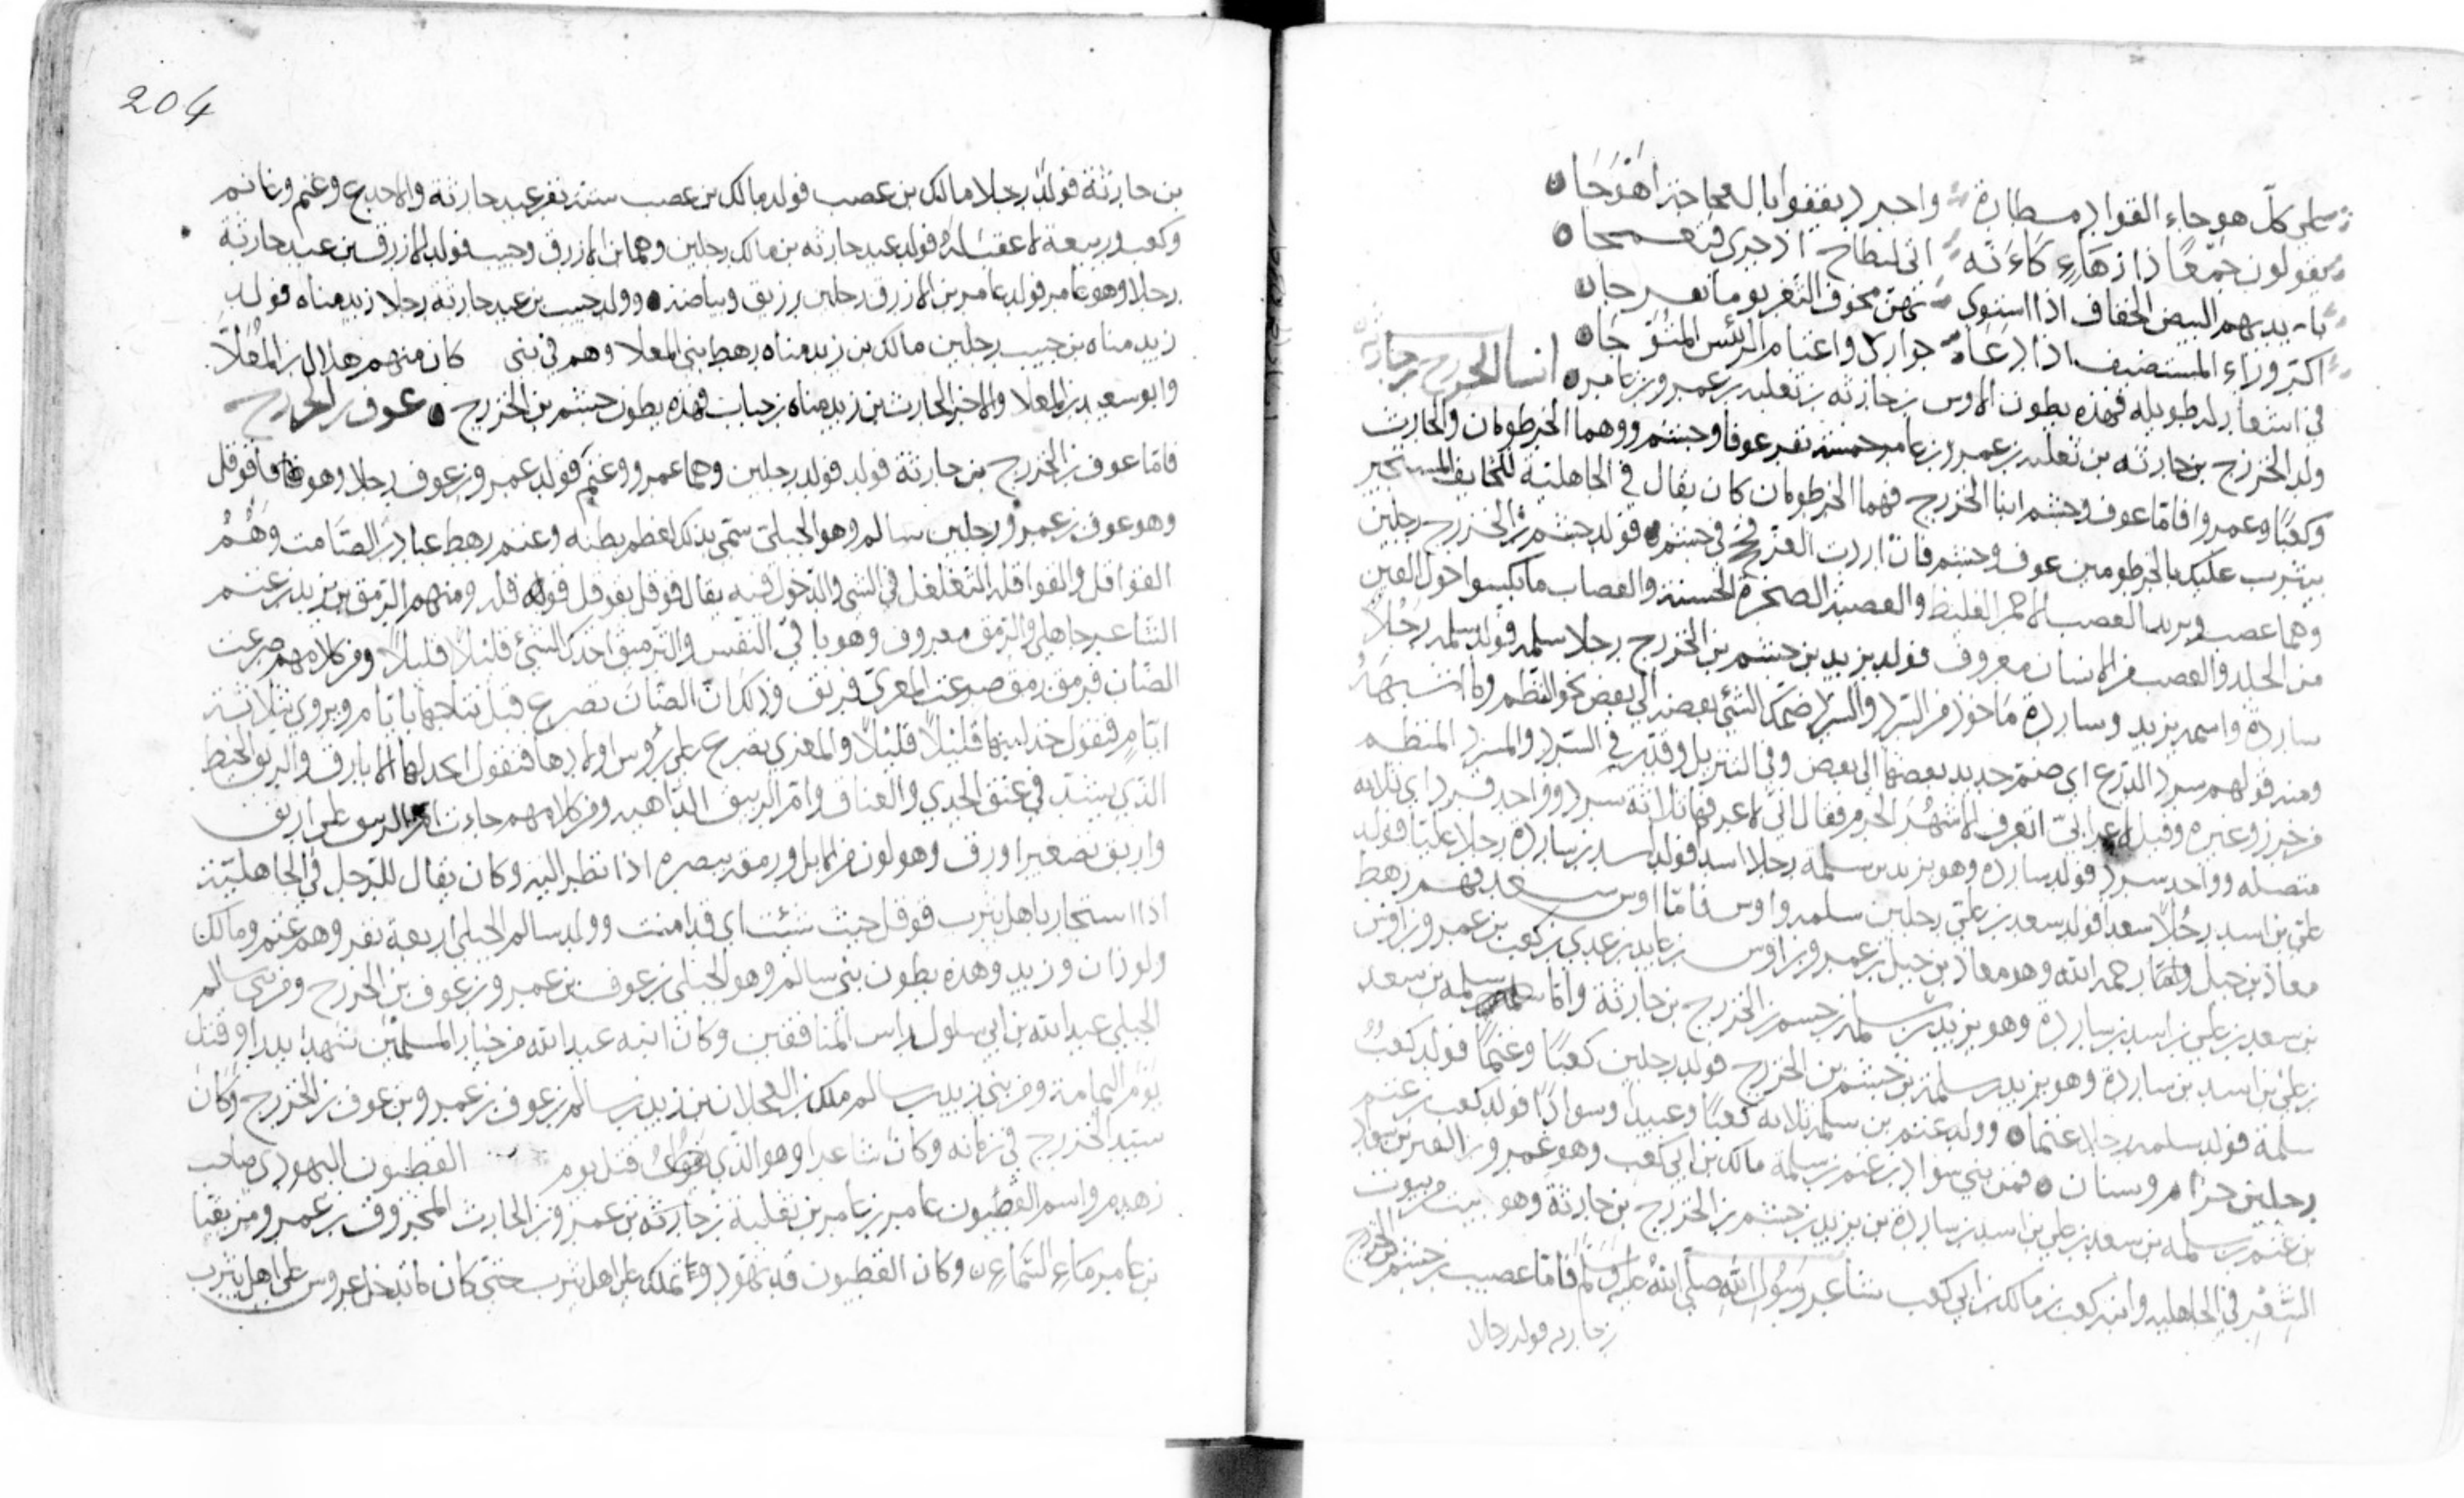 على كل هوجاء القواد مسطارة واجرد يقفوا باله محاجزا هوجا
يقولون جمعا ذا زهاء كاءنه اتى لبطاح اذ جرى
بايديهم البيض الخفاف اذا استوى بهن مخوف الثغر يوما تفرجا
اكر وراء المستضيف اذا دعاه جوادى واغنام الرئيس المتوجا
في اشعار له طويلة فهذه بطون الاوس بن حارثه بن ثعلبه بن عمرو بن عامر انساب الخزرج بن حارثة
ولد الخزرج بن حارثه بن ثعلبه بن عمرو بن عامر خمسة نفر عوفا وجشم ووهما الخرطومان والحارث
وكعبا وعمروا فاما عوف وجشم ابنا الخزرج فهما الخرطومان كان يقال في الجاهلية للخايف المستجير
بيثرب عليك بالخرطومين عوف وجشم فان اردت العز في جشم فولد جشم بن الخزرج رجلين
وهما عصب ويزيد العصب الاحمر الغليظ والعصبة الصخرة الخشنة والعصاب ما يكسوا حول العين
من الجلد والعصب من الانسان معروف فولد يزيد بن جشم بن الخزرج رجلا سلمه فولد سلمه رجلا
ساردة واسمه يزيد وساردة ماخوذ من السرد والسرد ضمك الشئ بعضه الى بعض نحو النظم وما اشبهه
ومنه قولهم سرد الدرع اي ضم حديد بعضها الى بعض وفي التنزيل وقدر في السرد والمسرد المنظم
من خرز وغيره وقيل لاعرابي اتعرف الاشهر الحرم فقال اني لاعرفها ثلاثة سرد وواحد فرد اي ثلاثه
متصله وواحد سرد فولد سارده وهو يزيد بن سلمة رجلا اسدا فولد اسد بن سارده رجلا عليا فولد
علي بن اسد رجلا سعدا فولد سعد بن علي رجلين سلمه واوس فاما اوس بن سعد فهم رهط
معاذ بن جبل رحمه الله وهو معاذ بن جبل بن عمرو بن اوس بن عايد بن عدي بن كعب بن عمرو بن اوس
بن سعد بن علي بن اسد بن ساردة وهو يزيد بن سلمه بن جشم بن الخزرج بن حارثة واما سلمه بن سعد
بن علي بن اسد بن ساردة وهو يزيد بن سلمة بن جشم بن الخزرج فولد رجلين كعبا وغنما فولد كعب
سلمة فولد سلمه رجلا غنما وولد غنم بن سلمه ثلاثه كعبا وعبيدا وسوادا فولد كعب بن غنم
رجلين حرام وسنان فمن بني سواد بن غنم بن سلمة مالك بن ابي كعب وهو عمرو بن القين بن سواد
بن غنم بن سلمه بن سعد بن علي بن اسد بن ساردة بن يزيد بن جشم بن الخزرج بن حارثة وهو بيت من بيوت
الشعر في الجاهليه وابنه كعب بن مالك بن ابي كعب شاعر رسول الله صلى الله عليه وسلم فاما عصيب بن جشم بن الخزرج
بن حارثه فولد رجلا
204
بن حارثة فولد رجلا مالك بن عصب فولد مالك بن عصب ستة نفر عبد حارثة والاجدع وغنم وغانم
وكعب وربيعة لا عقب له فولد عبد حارثه بن مالك رجلين وهما بن الازرق وحبيب فولد الازرق بن عبد حارثة
رجلا وهو عامر فولد عامر بن الازرق رجلين زريق وبياضة وولد حبيب بن عبد حارثه رجلا زيد مناه فولد
زيد مناه بن حبيب رجلين مالك بن زيد مناه رهط بني المعلا وهم في بني كان منهم هلال بن المعلا
وابو سعيد بن المعلا والاخر الحارث بن زيد مناه بن حبيب فهذه بطون جشم بن الخزرج عوف بن الخزرج
فاما عوف بن الخزرج بن حارثة فولد فولد رجلين وهما عمرو وغنم فولد عمرو بن عوف رجلا وهو قوقل
وهو عوف بن عمرو رجلين سالم وهو الحبلى سمي بذلك لعظم بطنه وغنم رهط عبادة بن الصامت وهم
القواقل والقواقل التغلغل في الشئ والدخول فيه يقال قوقل يقوقل قوقله ومنهم الرمق بن زيد بن غنم
الشاعر جاهلي والرمق معروف وهو باقي النفس والترميق اخذك الشئ قليلا قليلا ومن كلامهم ضرعت
الضان فرمق رمق ضرعت المعزى فربق وذلك ان الضان تضرع قبل نتاجها بايام ويروى بثلاثة
ايام فتقول خذ لبنها قليلا قليلا والمعزي تضرع على رؤوس اولادها فتقول اعد لها الارباق والربق الخيط
الذي يشد في عنق الجدي والعناق وام الربيق الداهيه ومن كلامهم جاءت ام الربيق على اريق
واريق تصغير اورق وهو لون من الابل ورمق ببصره اذا نظر اليه وكان يقال للرجل في الجاهلية
اذا استجار باهل يثرب قوقل حيث شئت اى قد امنت وولد سالم الحبلى اربعة نفر وهم غنم ومالك
ولوذان وزيد وهذه بطون بني سالم وهو الحبلى بن عوف بن عمرو بن عوف بن الخزرج ومن بني سالم
الحبلى عبد الله بن ابي سلول راس المنافقين وكان ابنه عبد الله من خيار المسلمين شهد بدرا وقتل
يوم اليمامة ومن بني زيد بن سالم ملك بن العجلان بن زيد بن سالم بن عوف بن عمرو بن عوف بن الخزرج وكان
سيد الخزرج في زمانه وكان شاعرا وهو الذي قتل يوم الفطيون اليهودي صاحب
زهدم واسم الفطيون عامر بن عامر بن ثعلبة بن حارثه بن عمرو بن الحارث المحروق بن عمرو مزيقيا
بن عامر ماء السماء وكان الفطيون قد تهود وتملك على اهل يثرب حتى كان لا تدخل عروس على اهل يثرب